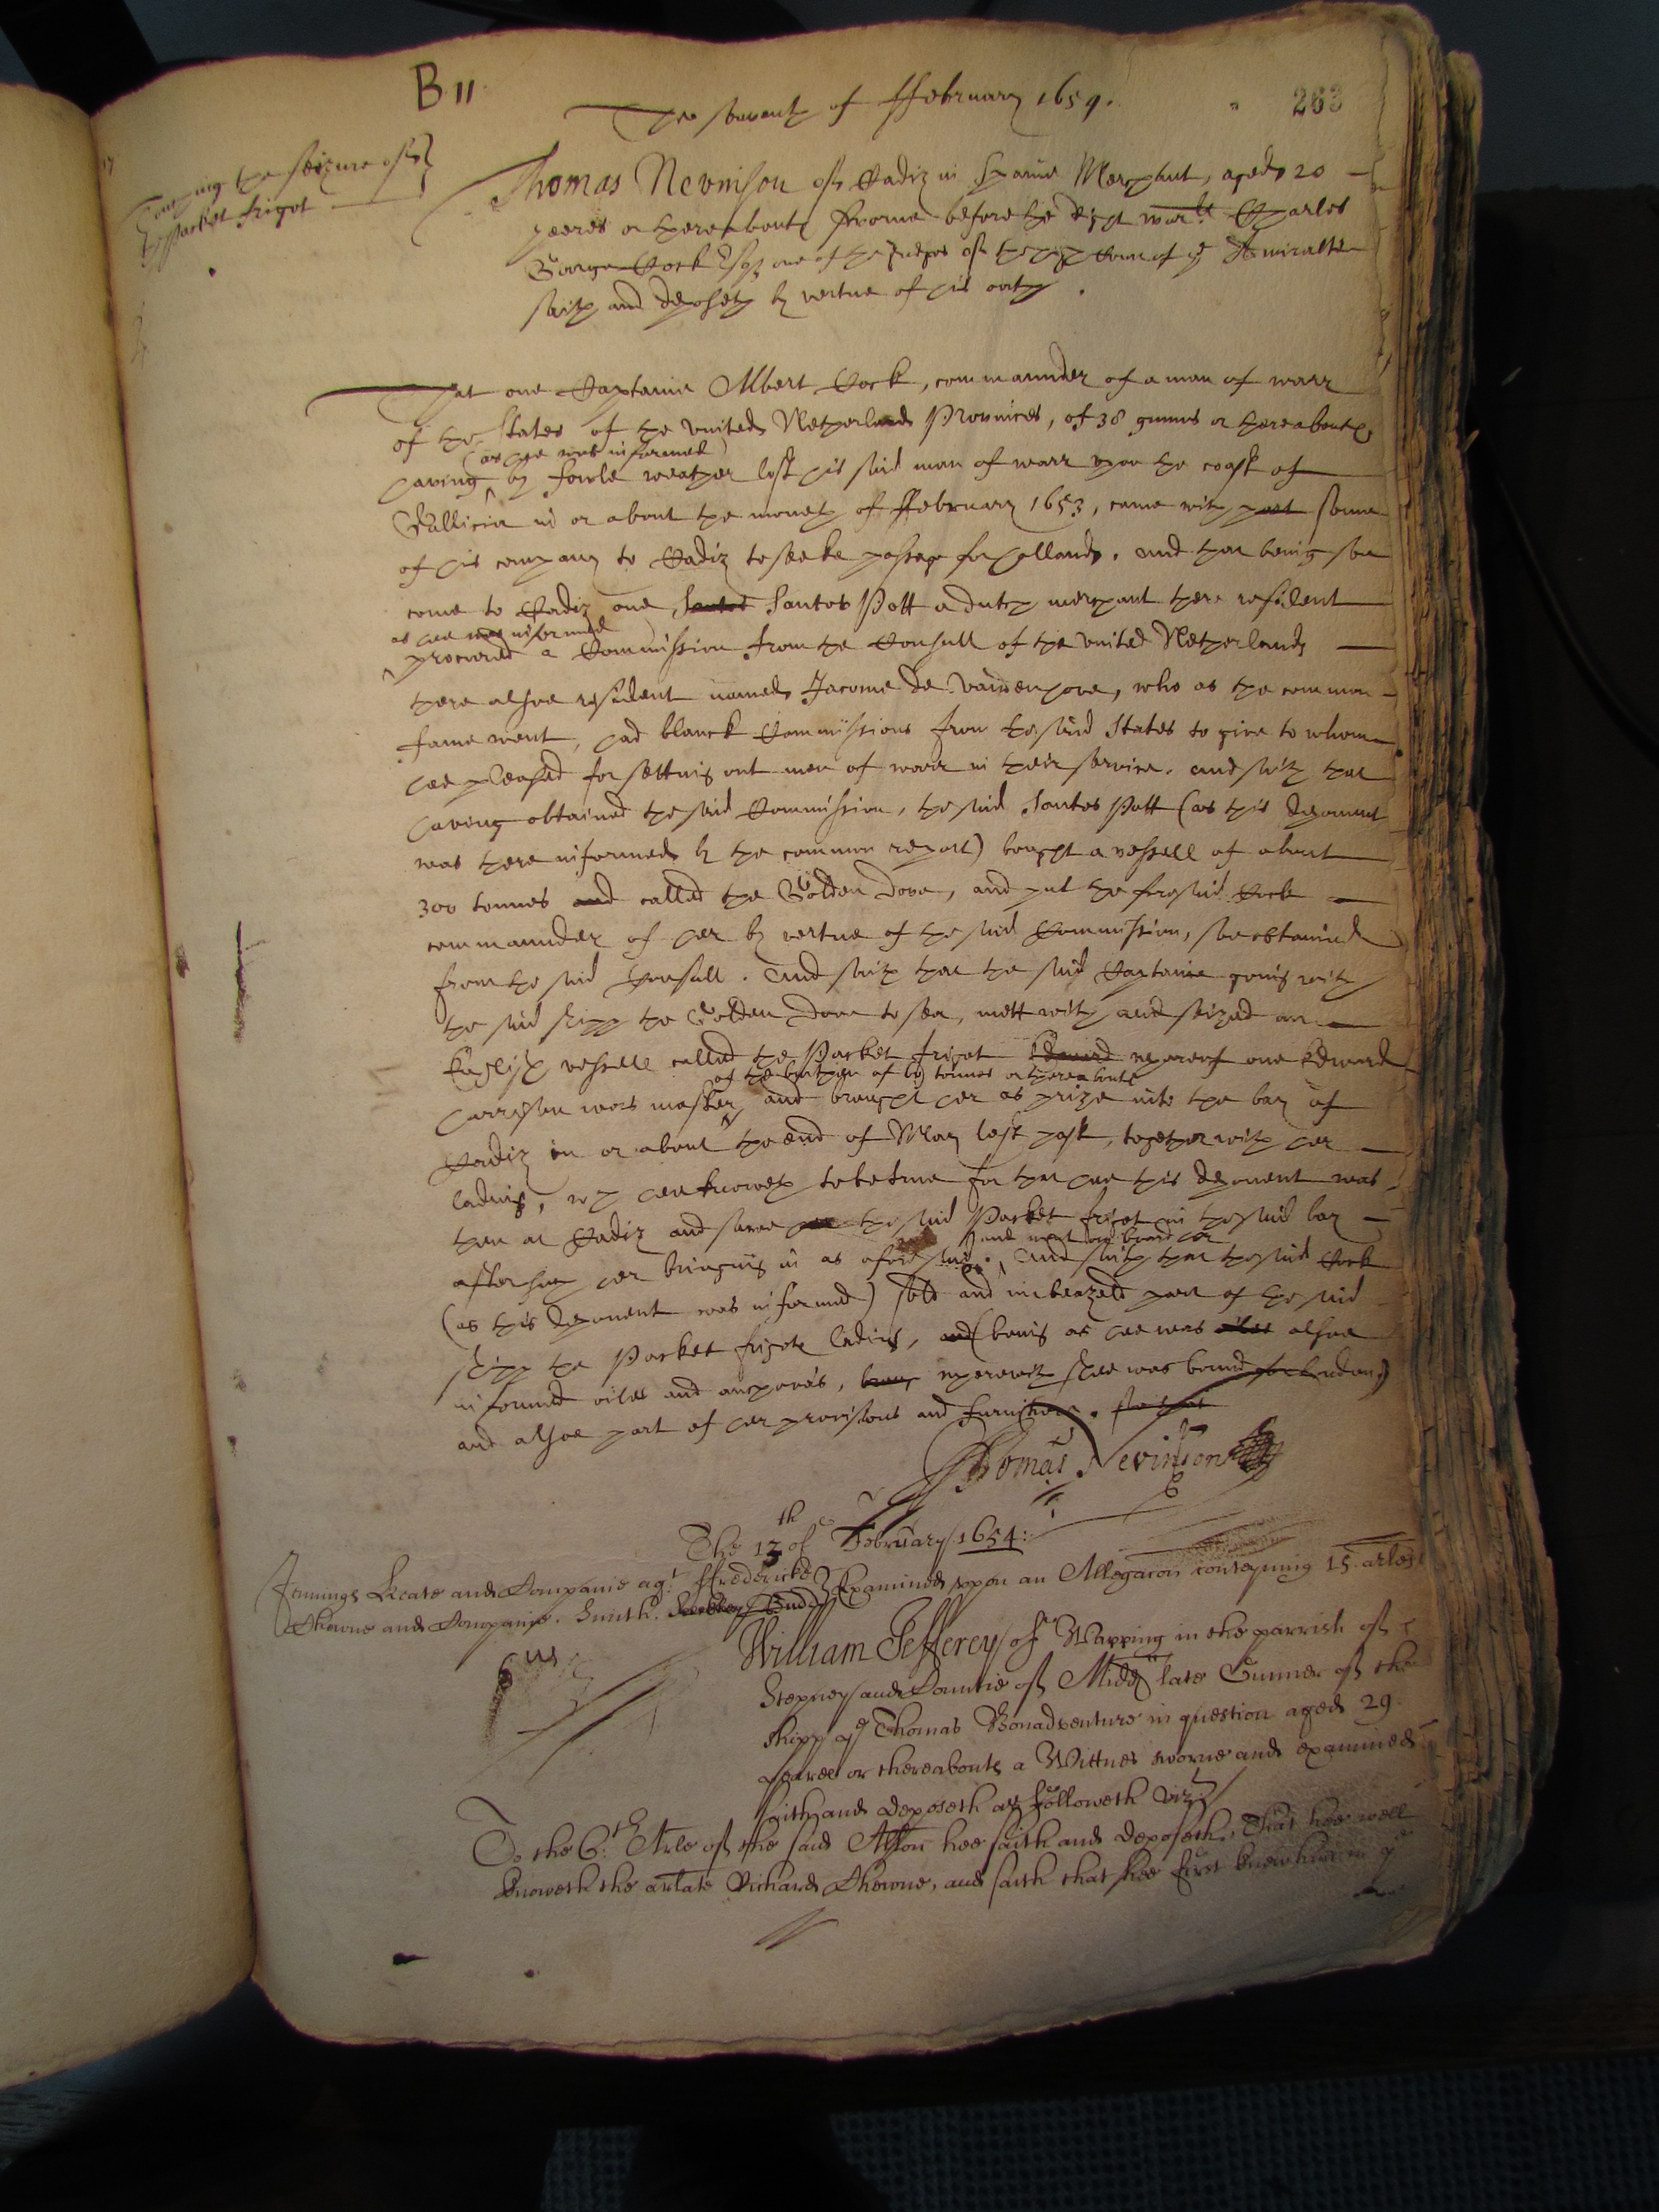 B 11
263
The seaventh of ffebruary 1654.
Touching the seizure of
the Packet frigot
Thomas Nevinson of Cadiz in Spaine Merchant, aged 20
yeeres or thereabouts sworne before the right wor.ll Charles
George Cock Esq. one of the Judges of the high Court of the Admiraltie
saith and deposeth by vertue of his oath.
That one Captaine Albert Cock, commaunder of a man of warr
of the States of the United Netherlands Provinces, of 38 gunns or thereabouts,
(as hee was informed)
having by fowle weather lost his said man of warr upon the coast of
Gallicia in or about the moneth of ffebruary 1653, came with part some
of his company to Cadiz to seeke passage for holland, and that being soe
come to Cadiz one Santos Santos Pott a dutch merchant there resident
as hee was informed
procured a Commission from the Consull of the United Netherlands
there alsoe resident named Jacome de Vandenhove, who as the common
fame went, had blanck Commissions from the said States to give to whom
hee pleased for setting out men of warr in their service. and saith that
having obtained the said Commission, the said Santos Pott (as this deponent
was there informed by the common report) bought a vessell of about
300 tonnes and called the Golden Dove, and put the foresaid Cock
commaunder of her by vertue of the said Commission, soe obtained
from the said Consull. And saith that the said Captaine going with
the said shipp the Golden Dove to sea, mett with and seized an
English vessell called the Packet frigot Edward whereof one Edward
of the burthen of 60 tonnes or thereabouts
harrison was master, and brought her as prize into the bay of
Cadiz in or about the end of May last past, together with her
lading, wch hee knoweth to be true for that hee this deponent was
then at Cadiz and sawe her the said Packet frigot in the said bay
and went on board her
after such her bringing in as aforesaid. And saith that the said Cock
(as this deponent was informed) sold and imbeazeld part of the said
shipp the Packet frigots lading, and (being as hee was alsoe alsoe
informed oiles and anchoves, wherewith shee was bound for London)
and alsoe part of her provisions and furniture.
Thomas Nevinson
The 13th of February 1654:
Jennings Keate and Companie agt. ffredericke
Thorowe and Companie. Smith.
Examined upon an Allegacon conteyning 15 arles
William Jefferey of Wapping in the parrish of
Stepney and Countie of Middx late Gunner of the
shipp ye Thomas Bonadventure in question aged 29
yeares or thereabouts a Wittnes sworne and examined
saith and deposeth as followeth viz
To the 6th Arle of the said Allon hee saith and deposeth, That hee well
knoweth the arlate Richard Thorowe, and saith that hee first knew him in ye